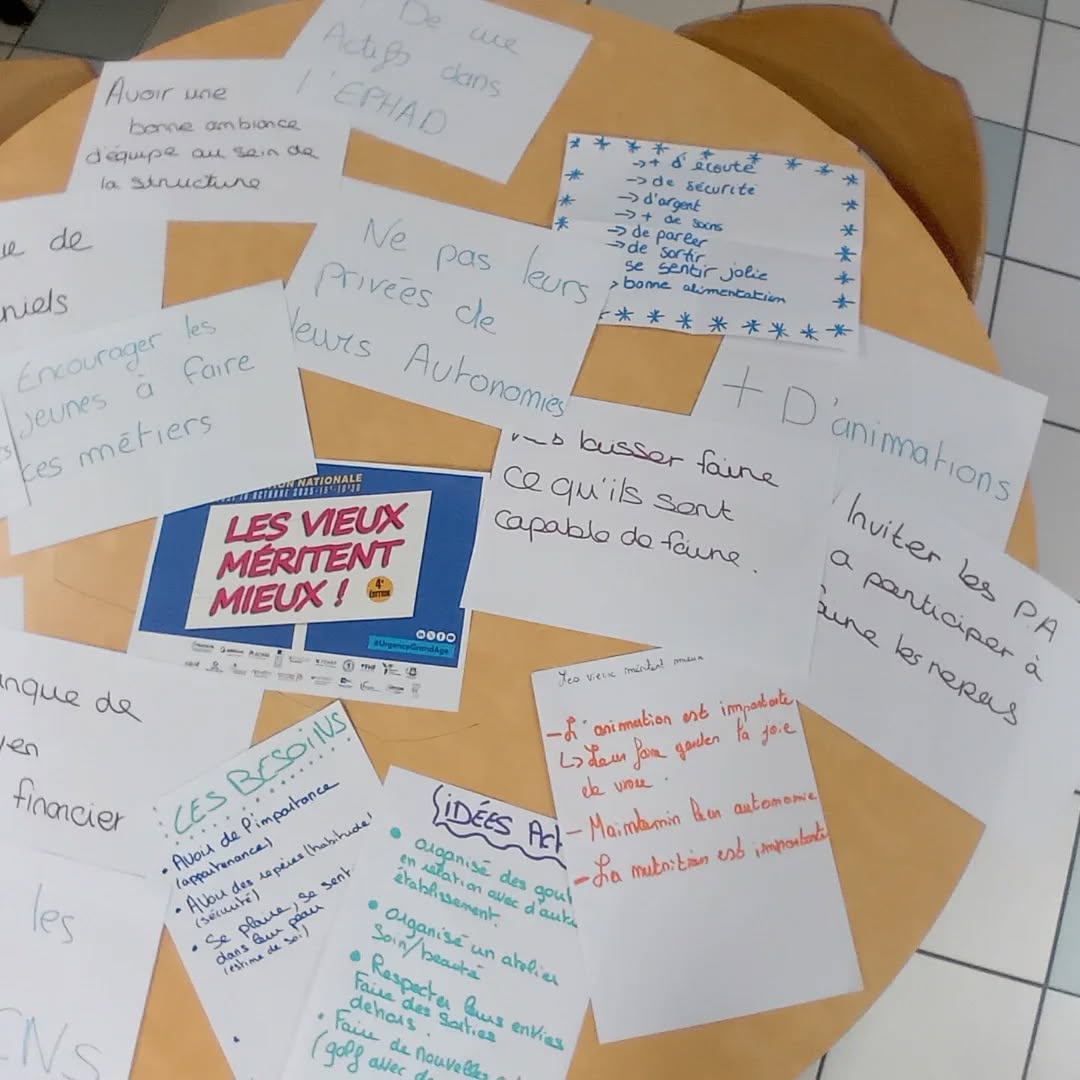 De une
Actifs dans
l'EPHAD
Avoir une
bonne ambiance
d'équipe au sein de
la structure
→ + d'écoute
→ de sécurité
→ d'argent
→ + de soins
→ de parler
→ de sortir
se sentir jolie
> bonne alimentation
de
niels
Ne pas leurs
privées de
leurs Autonomies
Encourager les
jeunes à faire
ces métiers
+ D'animations
laisser faire
ce qu'ils sont
capable de faire.
Inviter les PA
a participer à
les repas
NATIONALE
LES VIEUX
MÉRITENT
MIEUX !
4e
ÉDITION
#UrgenceGrandAge
de
financier
LES BESOINS
• Avoir de l'importance
(appartenance)
• Avoir des repères (habitude)
(sécurité)
• Se plaire, se sent
dans leur peau
(estime de soi)
IDÉES Act
• Organisé des gout
en relation avec d'aut
établissement.
• Organisé un atelier
Soin/beauté
• Respecter leurs envies
Faire des sorties
dehors.
• Faire de nouvelles
(golf avec de
Les vieux méritent mieux
- L'animation est importante
↳ Leur faire garder la joie
de vivre.
- Maintenir leur autonomie
- La nutrition est importante
les